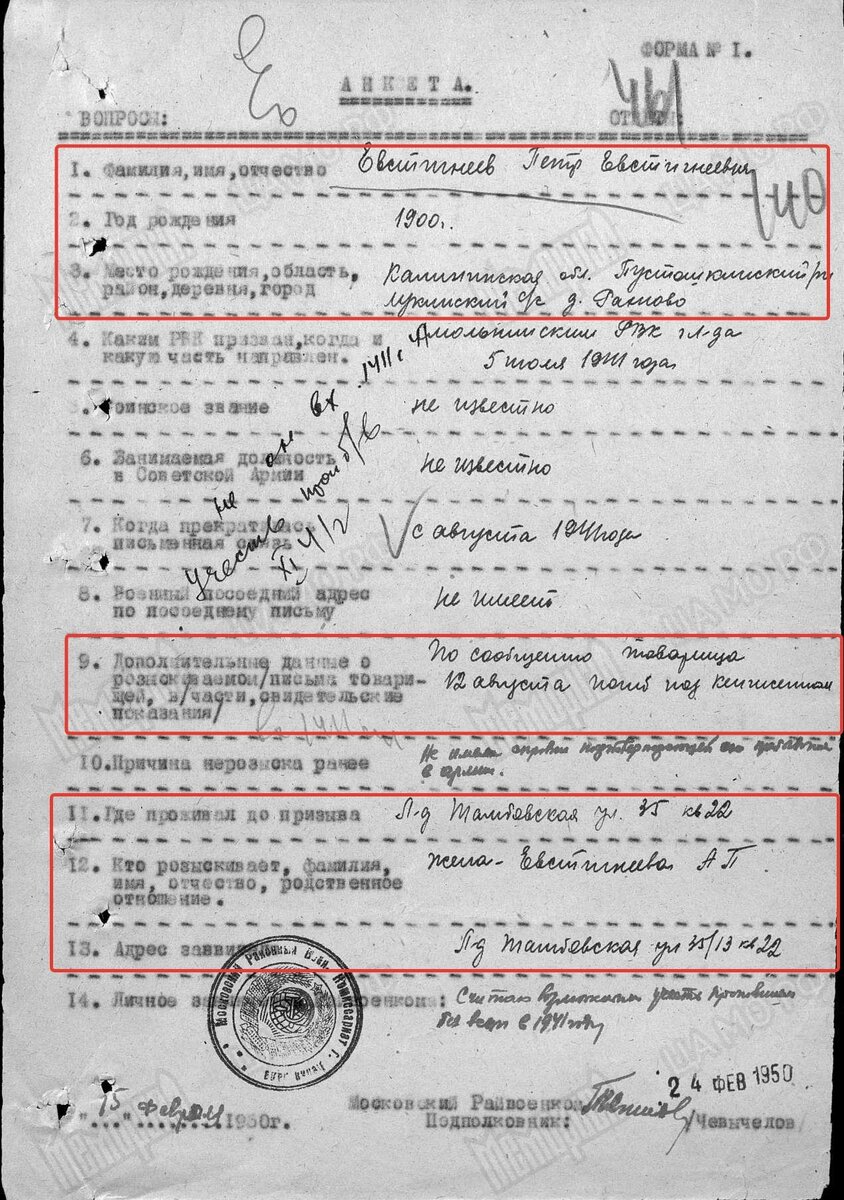 ФОРМА № I.
АНКЕТА.
ВОПРОСЫ:
1. Фамилия,имя,отчество Евстигнеев Петр Евстигнеевич
140
2. Год рождения 1900г.
3. Место рождения,область, район,деревня,город Калининская обл. Пустошкинский р/н
с/с д.
4. Каким РВК призван,когда и какую часть направлен. Смольнинским РВК гл-да
5 июля 1941 года
5. Воинское звание не известно
6. Занимаемая должность в Советской Армии не известно
7. Когда прекратилась письменная связь с августа 1941 года
8. Военный последний адрес по последнему письму не имеет
9. Дополнительные данные о розыскиваемом/письма товарищей, в/части,свидетельские показания/ По сообщению товарища
12 августа погиб под
вх 1411
10.Причина нерозыска ранее Не имела справки подтверждающей его
в армии.
11.Где проживал до призыва Л-д Тамбовская ул. 35 кв 22
12. Кто розыскивает, фамилия, имя, отчество, родственное отношение. жена - Евстигнеева А П
13. Адрес Л-д Тамбовская ул 35/13 кв 22
14. Личное Считаю возможным учесть пропавшим
без вести в 1941 году
Московский Районный Воен. Комиссариат г.
24 ФЕВ 1950
"15" Февраля 1950г.
Московский Райвоенком
Подполковник: /Чевычелов